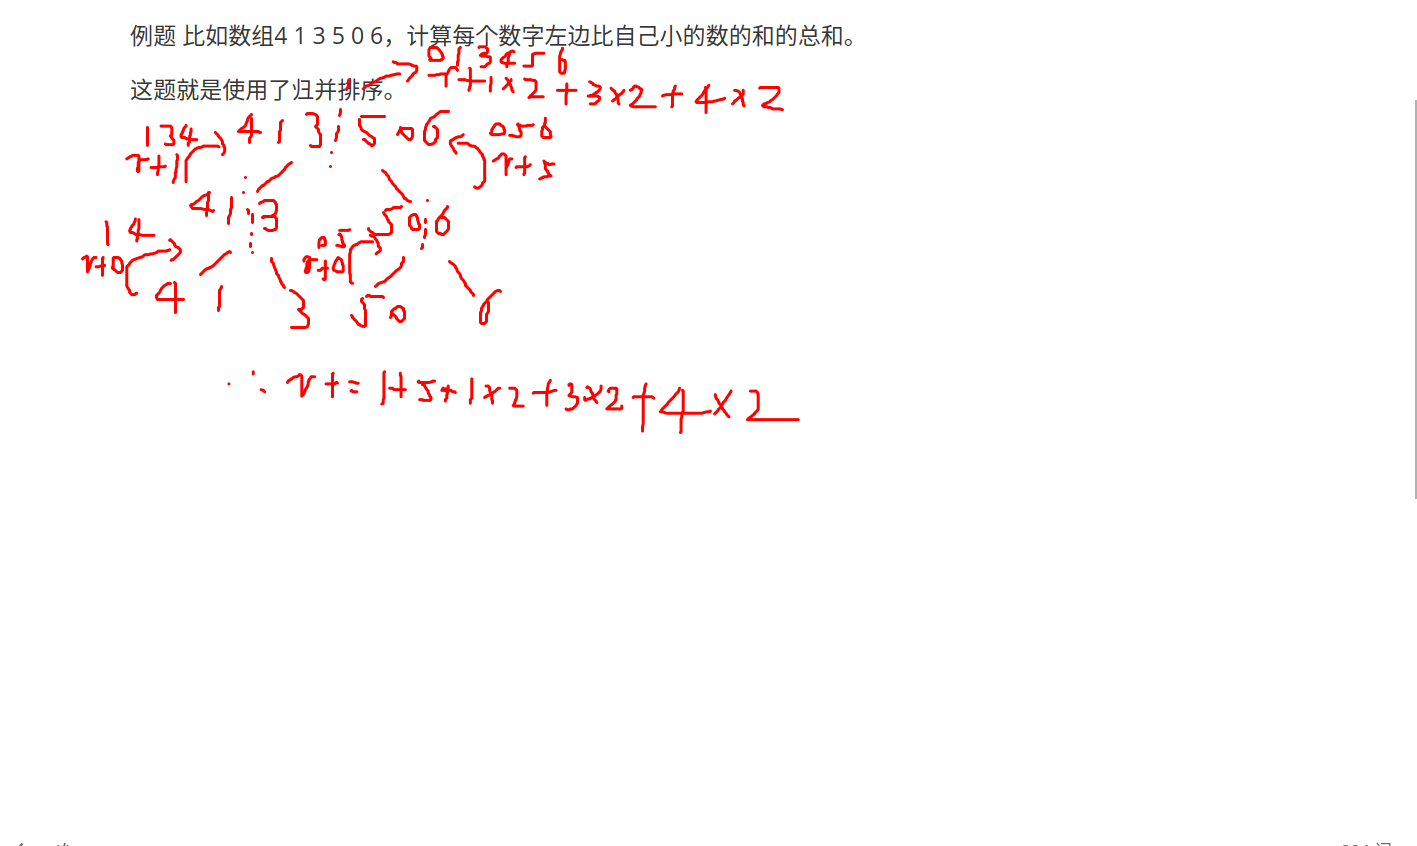 例题 比如数组4 1 3 5 0 6，计算每个数字左边比自己小的数的和的总和。
0 1 3 4 5 6
这题就是使用了归并排序。
r+1×2+3×2+4×2
134 4 1 3 5 0 6 056
r+1 r+5
4 1 3 5 0 6
1 4 05
r+0 r+0
4 1 3 5 0 6
∴ r+=1+5+1×2+3×2+4×2